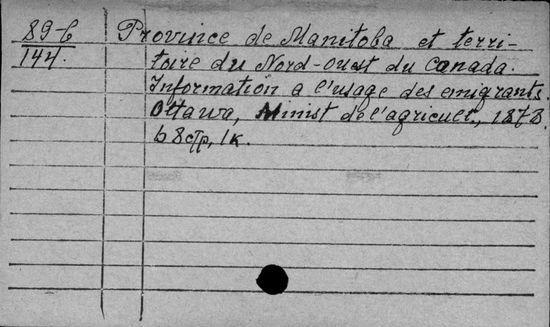 89-6
144.
Province de Manitoba et terri-
toire du Nord-ouest du Canada.
Information a l'usage des emigrants.
Ottawa, Minist de l'agricult., 1878.
68 стр, 1к.